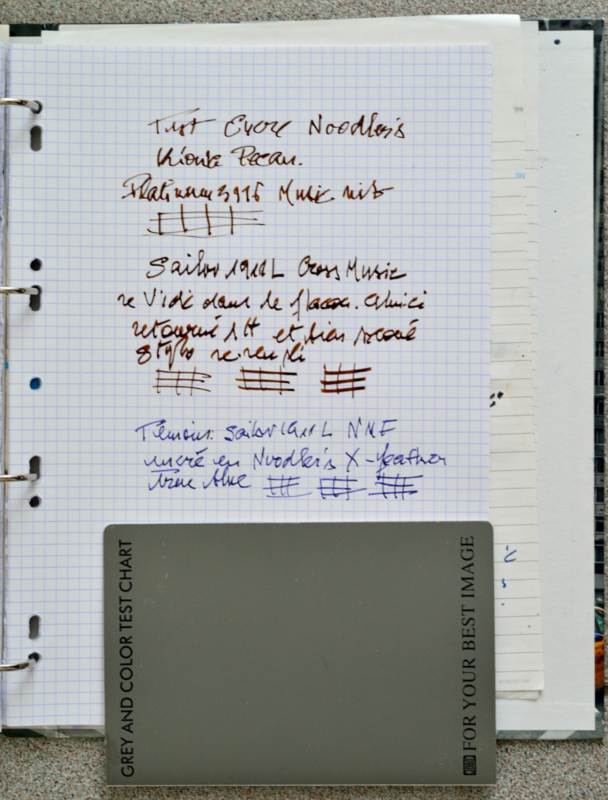 Test Encre Noodler's
Kiowa Pecan.
Platinum 3776 Music nib
Sailor 1911L Cross Music
se vidé dans le flacon. Celui ci
retourné 1H et bien secoué
Stylo re rempli
Témoin: Sailor 1911 L NMF
encré en Noodler's X-feather
blue
GREY AND COLOR TEST CHART
FOR YOUR BEST IMAGE